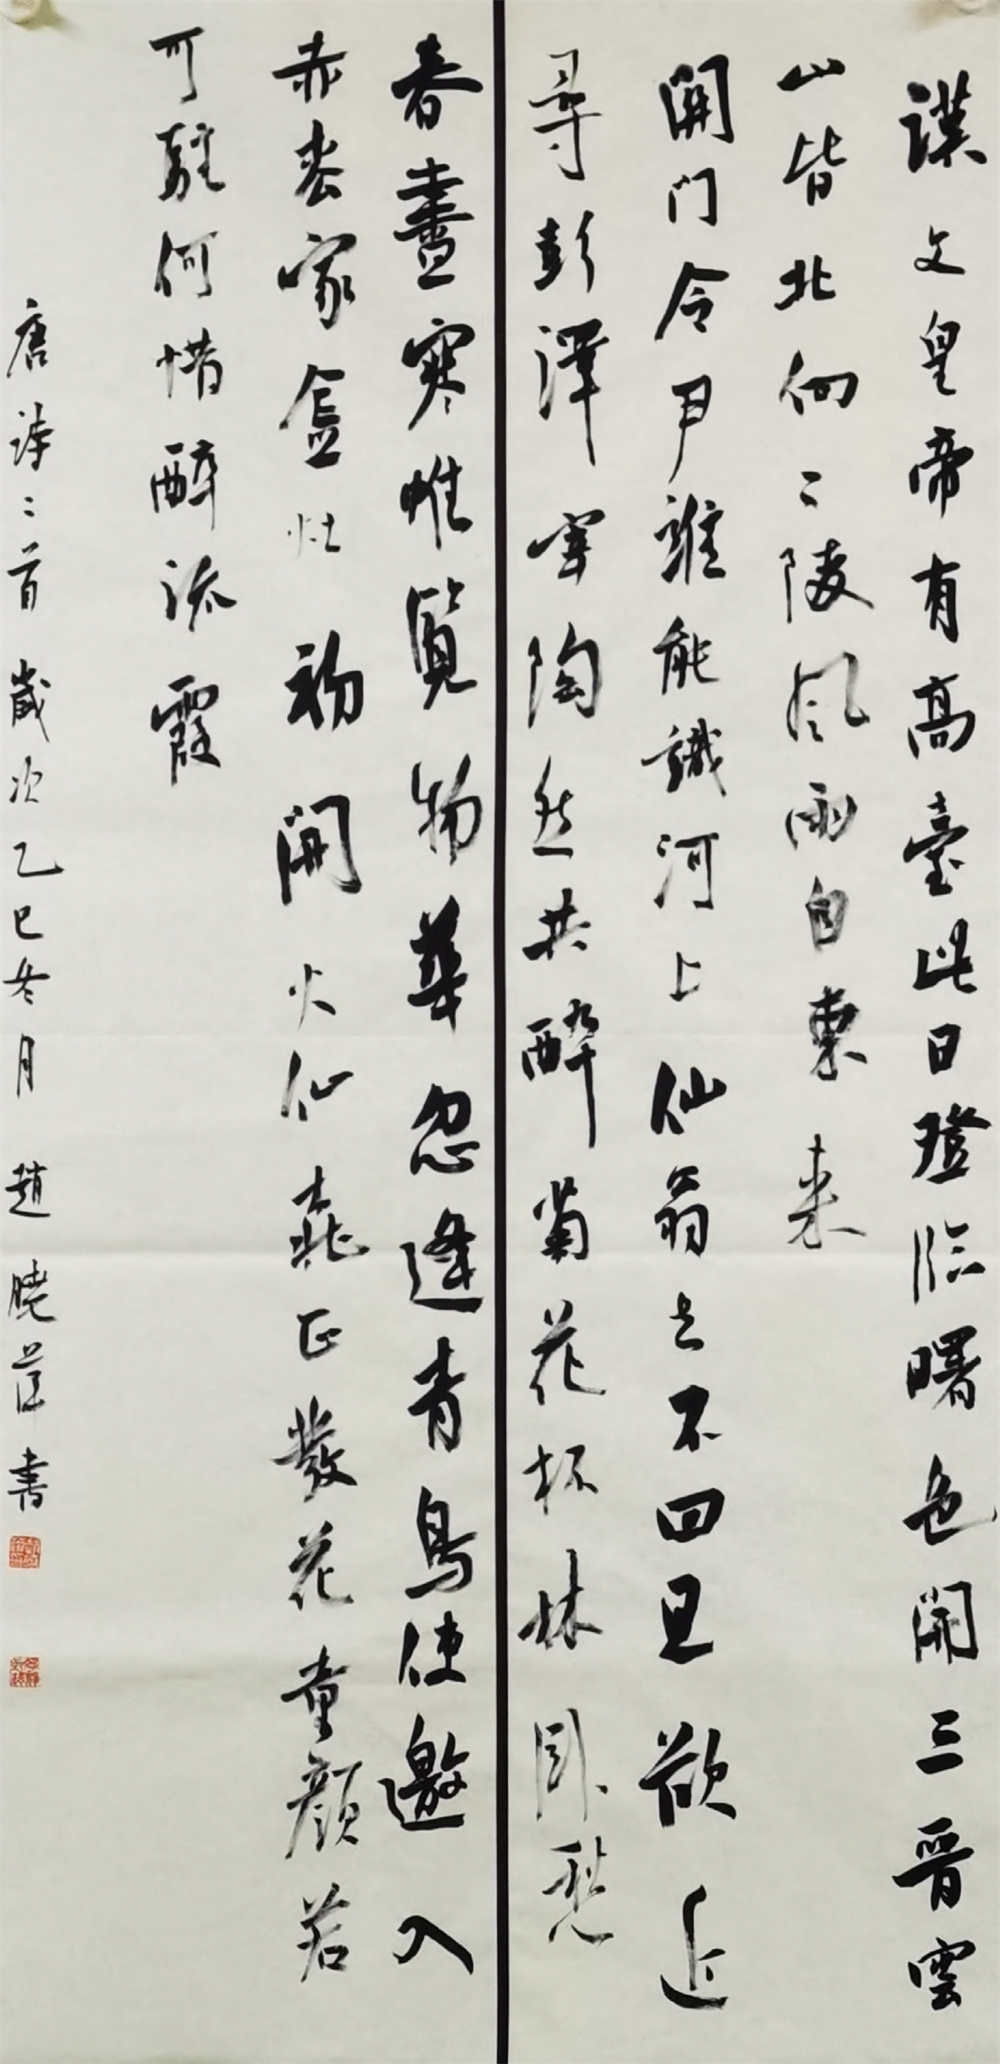 漢文皇帝有高臺此日登临曙色開三晋雲
山皆北向二陵風雨自東来
開门令尹誰能識河上仙翁去不回且欲近
尋彭澤宰陶然共醉菊花杯林卧愁
春盡寒帷覽物華忽逢青鳥使邀入
赤松家金灶初開火仙桃正發花童顏若
可駐何惜醉流霞
唐詩二首 歲次乙巳冬月 趙曉書